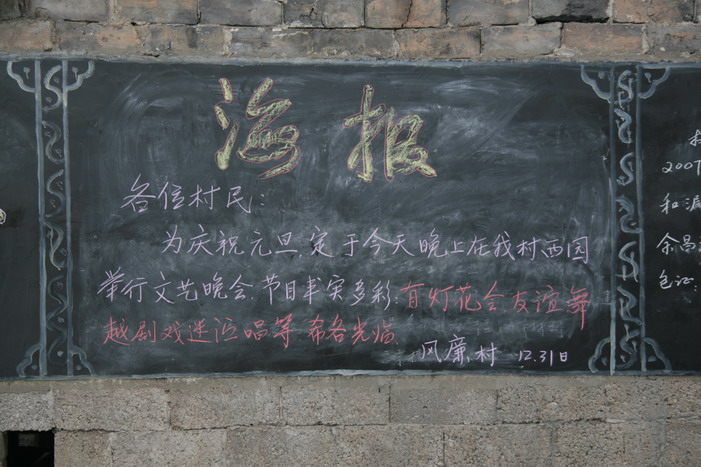 海报
各信村民：
为庆祝元旦，定于今天晚上在我村西园
举行文艺晚会，节目丰实多彩：有灯花会友谊舞
越剧戏迷演唱等 希各光临
风廉村 12.31日
2007
和
余昌
包证：